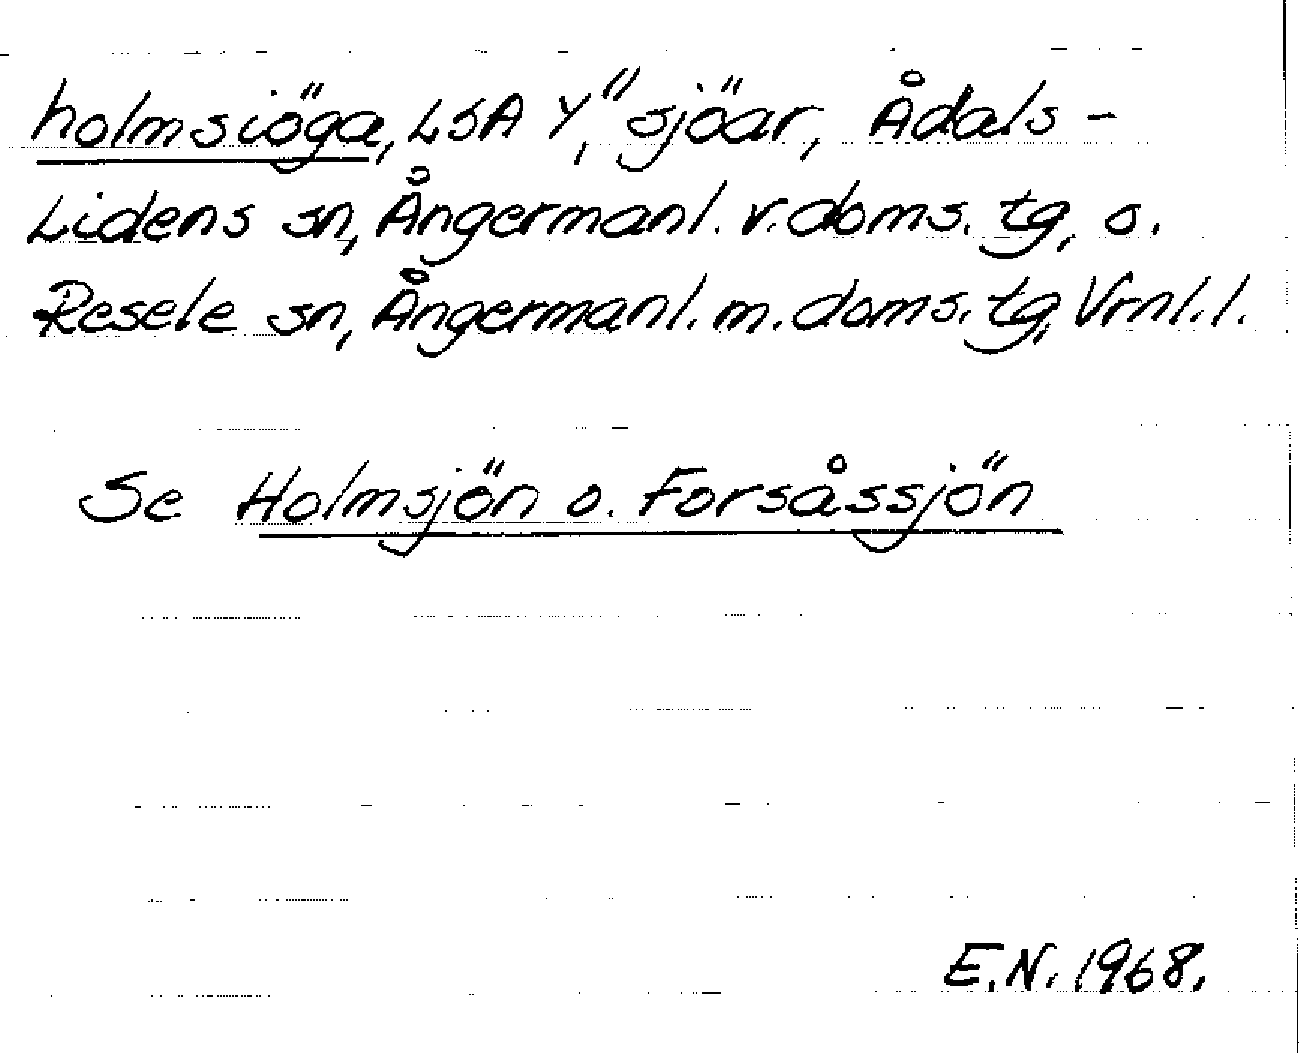 holmsiöga, LSA Y, sjöar, Ådals-
Lidens sn, Ångermanl. v. doms. tg, o.
Resele sn, Ångermanl. m. doms. tg, Vrnl. l.
Se Holmsjön o. Forsåssjön
E.N. 1968.